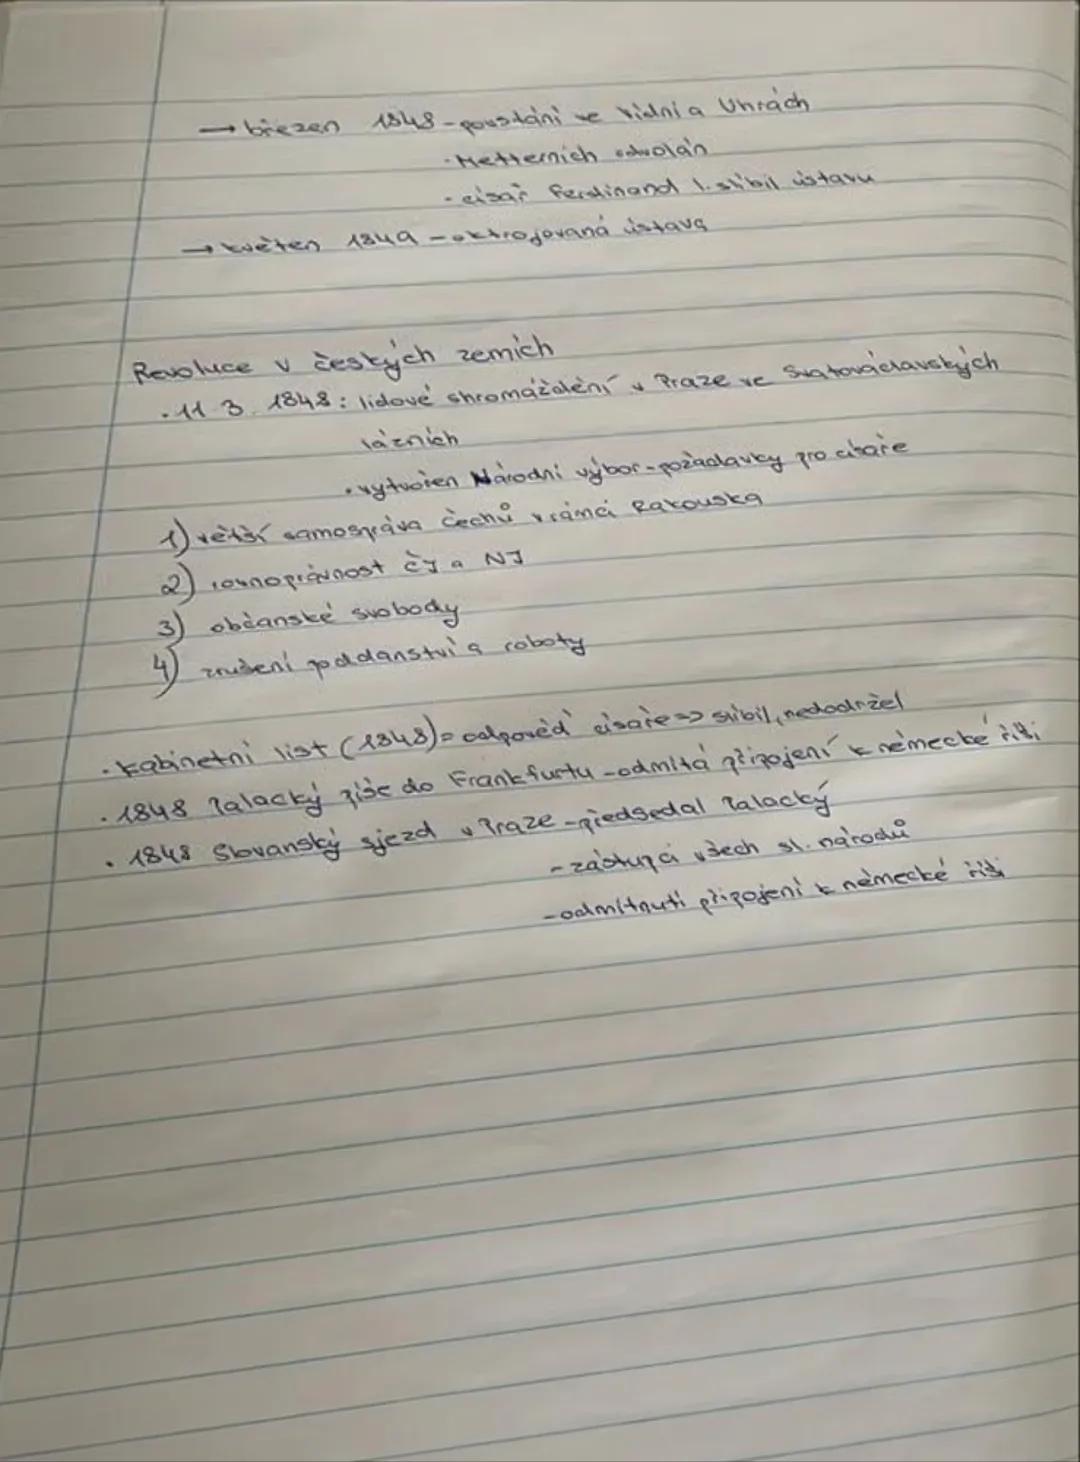 → březen 1848 - povstání ve Vídni a Uhrách
· Metternich odvolán
- císař Ferdinand I. slíbil ústavu
→ květen 1849 - oktrojovaná ústava
Revoluce v českých zemích
· 11. 3. 1848: lidové shromáždění v Praze ve Svatováclavských
lázních
· vytvořen Národní výbor - požadavky pro císaře
1) větší samospráva Čechů v rámci Rakouska
2) rovnoprávnost ČJ a NJ
3) občanské svobody
4) zrušení poddanství a roboty
· Kabinetní list (1848) = odpověď císaře => slíbil, nedodržel
· 1848 Palacký píše do Frankfurtu - odmítá připojení k německé říši
· 1848 Slovanský sjezd v Praze - předsedal Palacký
- zástupci všech sl. národů
- odmítnutí připojení k německé říši